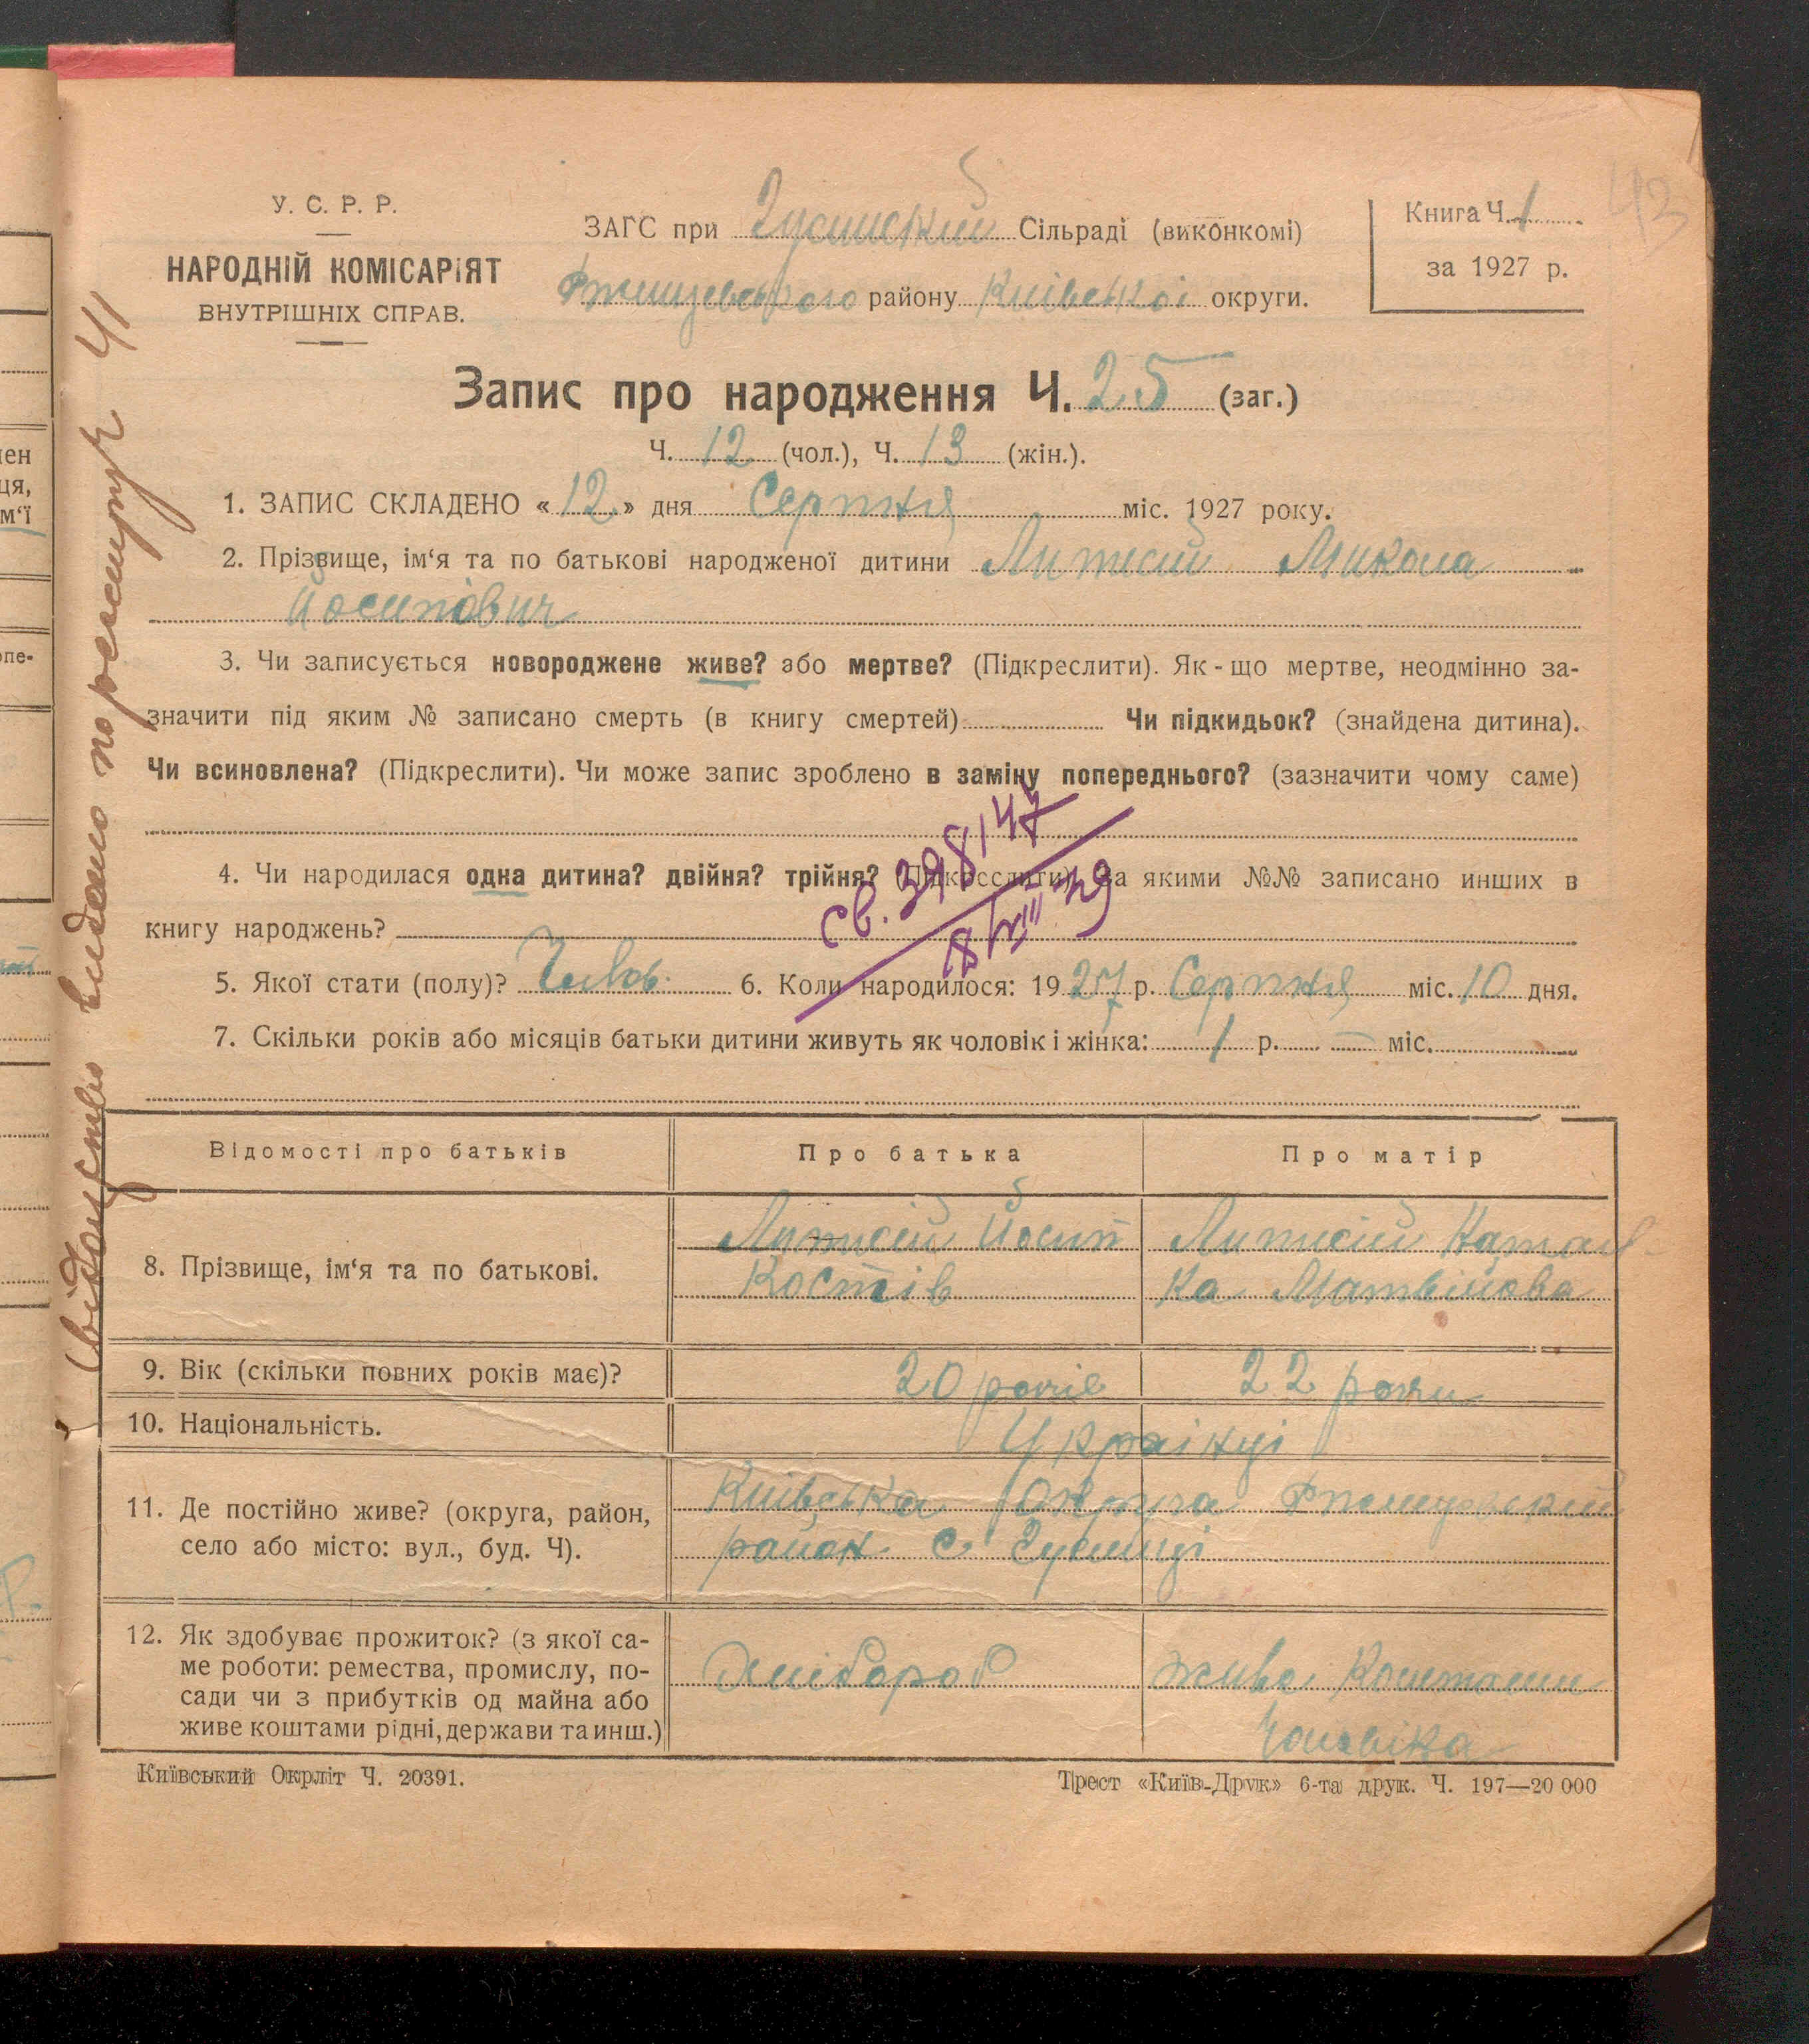 43
У. С. Р. Р.
НАРОДНІЙ КОМІСАРІЯТ
ВНУТРІШНІХ СПРАВ.
ЗАГС при Гусинській Сільраді (виконкомі)
Ржищевського району Київської округи.
Книга Ч. 1
за 1927 р.
Запис про народження Ч. 25 (заг.)
Ч. 12 (чол.), Ч. 13 (жін.).
1. ЗАПИС СКЛАДЕНО «12» дня Серпня міс. 1927 року.
2. Прізвище, ім‘я та по батькові народженої дитини Микола
Йосипович
3. Чи записується новороджене живе? або мертве? (Підкреслити). Як-що мертве, неодмінно за-
значити під яким № записано смерть (в книгу смертей) Чи підкидьок? (знайдена дитина).
Чи всиновлена? (Підкреслити). Чи може запис зроблено в заміну попереднього? (зазначити чому саме)
4. Чи народилася одна дитина? двійня? трійня? (Підкреслити). За якими №№ записано инших в
книгу народжень?
св. 398/47
8/VIII 49
5. Якої стати (полу)? Чолов. 6. Коли народилося: 1927 р. Серпня міс. 10 дня.
7. Скільки років або місяців батьки дитини живуть як чоловік і жінка: 1 р. — міс.
Відомості про батьків Про батька Про матір
8. Прізвище, ім‘я та по батькові.
Йосип
Костів
Натал
ка Матвійова
9. Вік (скільки повних років має)? 20 років 22 роки
10. Національність. Українці
11. Де постійно живе? (округа, район,
село або місто: вул., буд. Ч).
Київська округа Ржищевский
район с. Гусинці
12. Як здобуває прожиток? (з якої са-
ме роботи: ремества, промислу, по-
сади чи з прибутків од майна або
живе коштами рідні, держави та инш.)
Хлібороб
живе коштами
чоловіка
Київський Окрліт Ч. 20391.
Трест «Київ-Друк» 6-та друк. Ч. 197—20 000
видано по 41